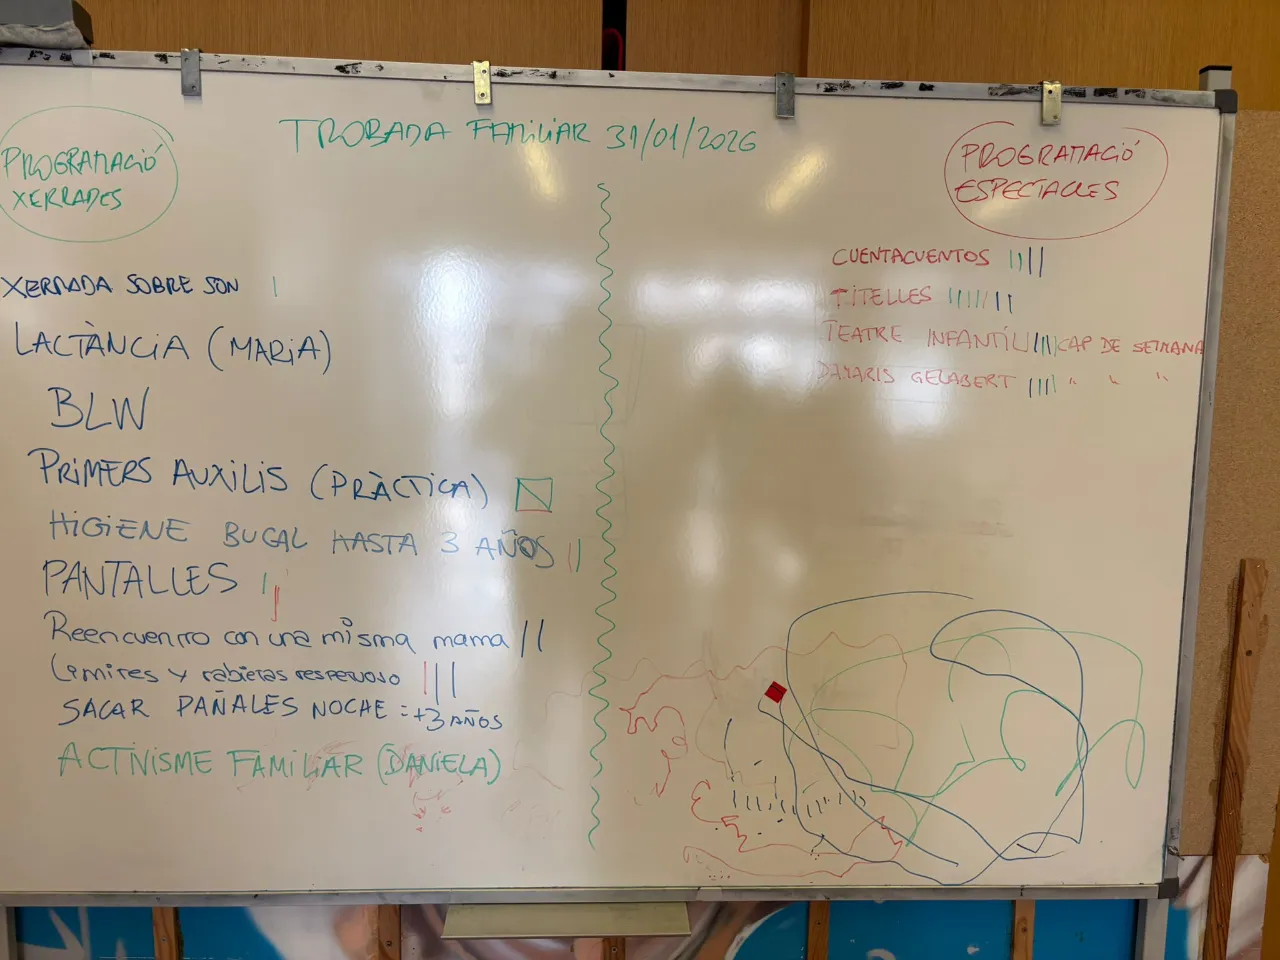 TROBADA FAMILIAR 31/01/2026
PROGRAMACIÓ
XERRADES
XERRADA SOBRE SON
LACTÀNCIA (MARIA)
BLW
PRIMERS AUXILIS (PRÀCTICA)
HIGIENE BUCAL HASTA 3 AÑOS
PANTALLES
Reencuentro con una misma mama
Limites y rabietas respetuoso
SACAR PAÑALES NOCHE = +3 AÑOS
ACTIVISME FAMILIAR (DANIELA)
PROGRAMACIÓ
ESPECTACLES
CUENTACUENTOS
TITELLES
TEATRE INFANTIL CAP DE SETMANA
DAMARIS GELABERT " " "